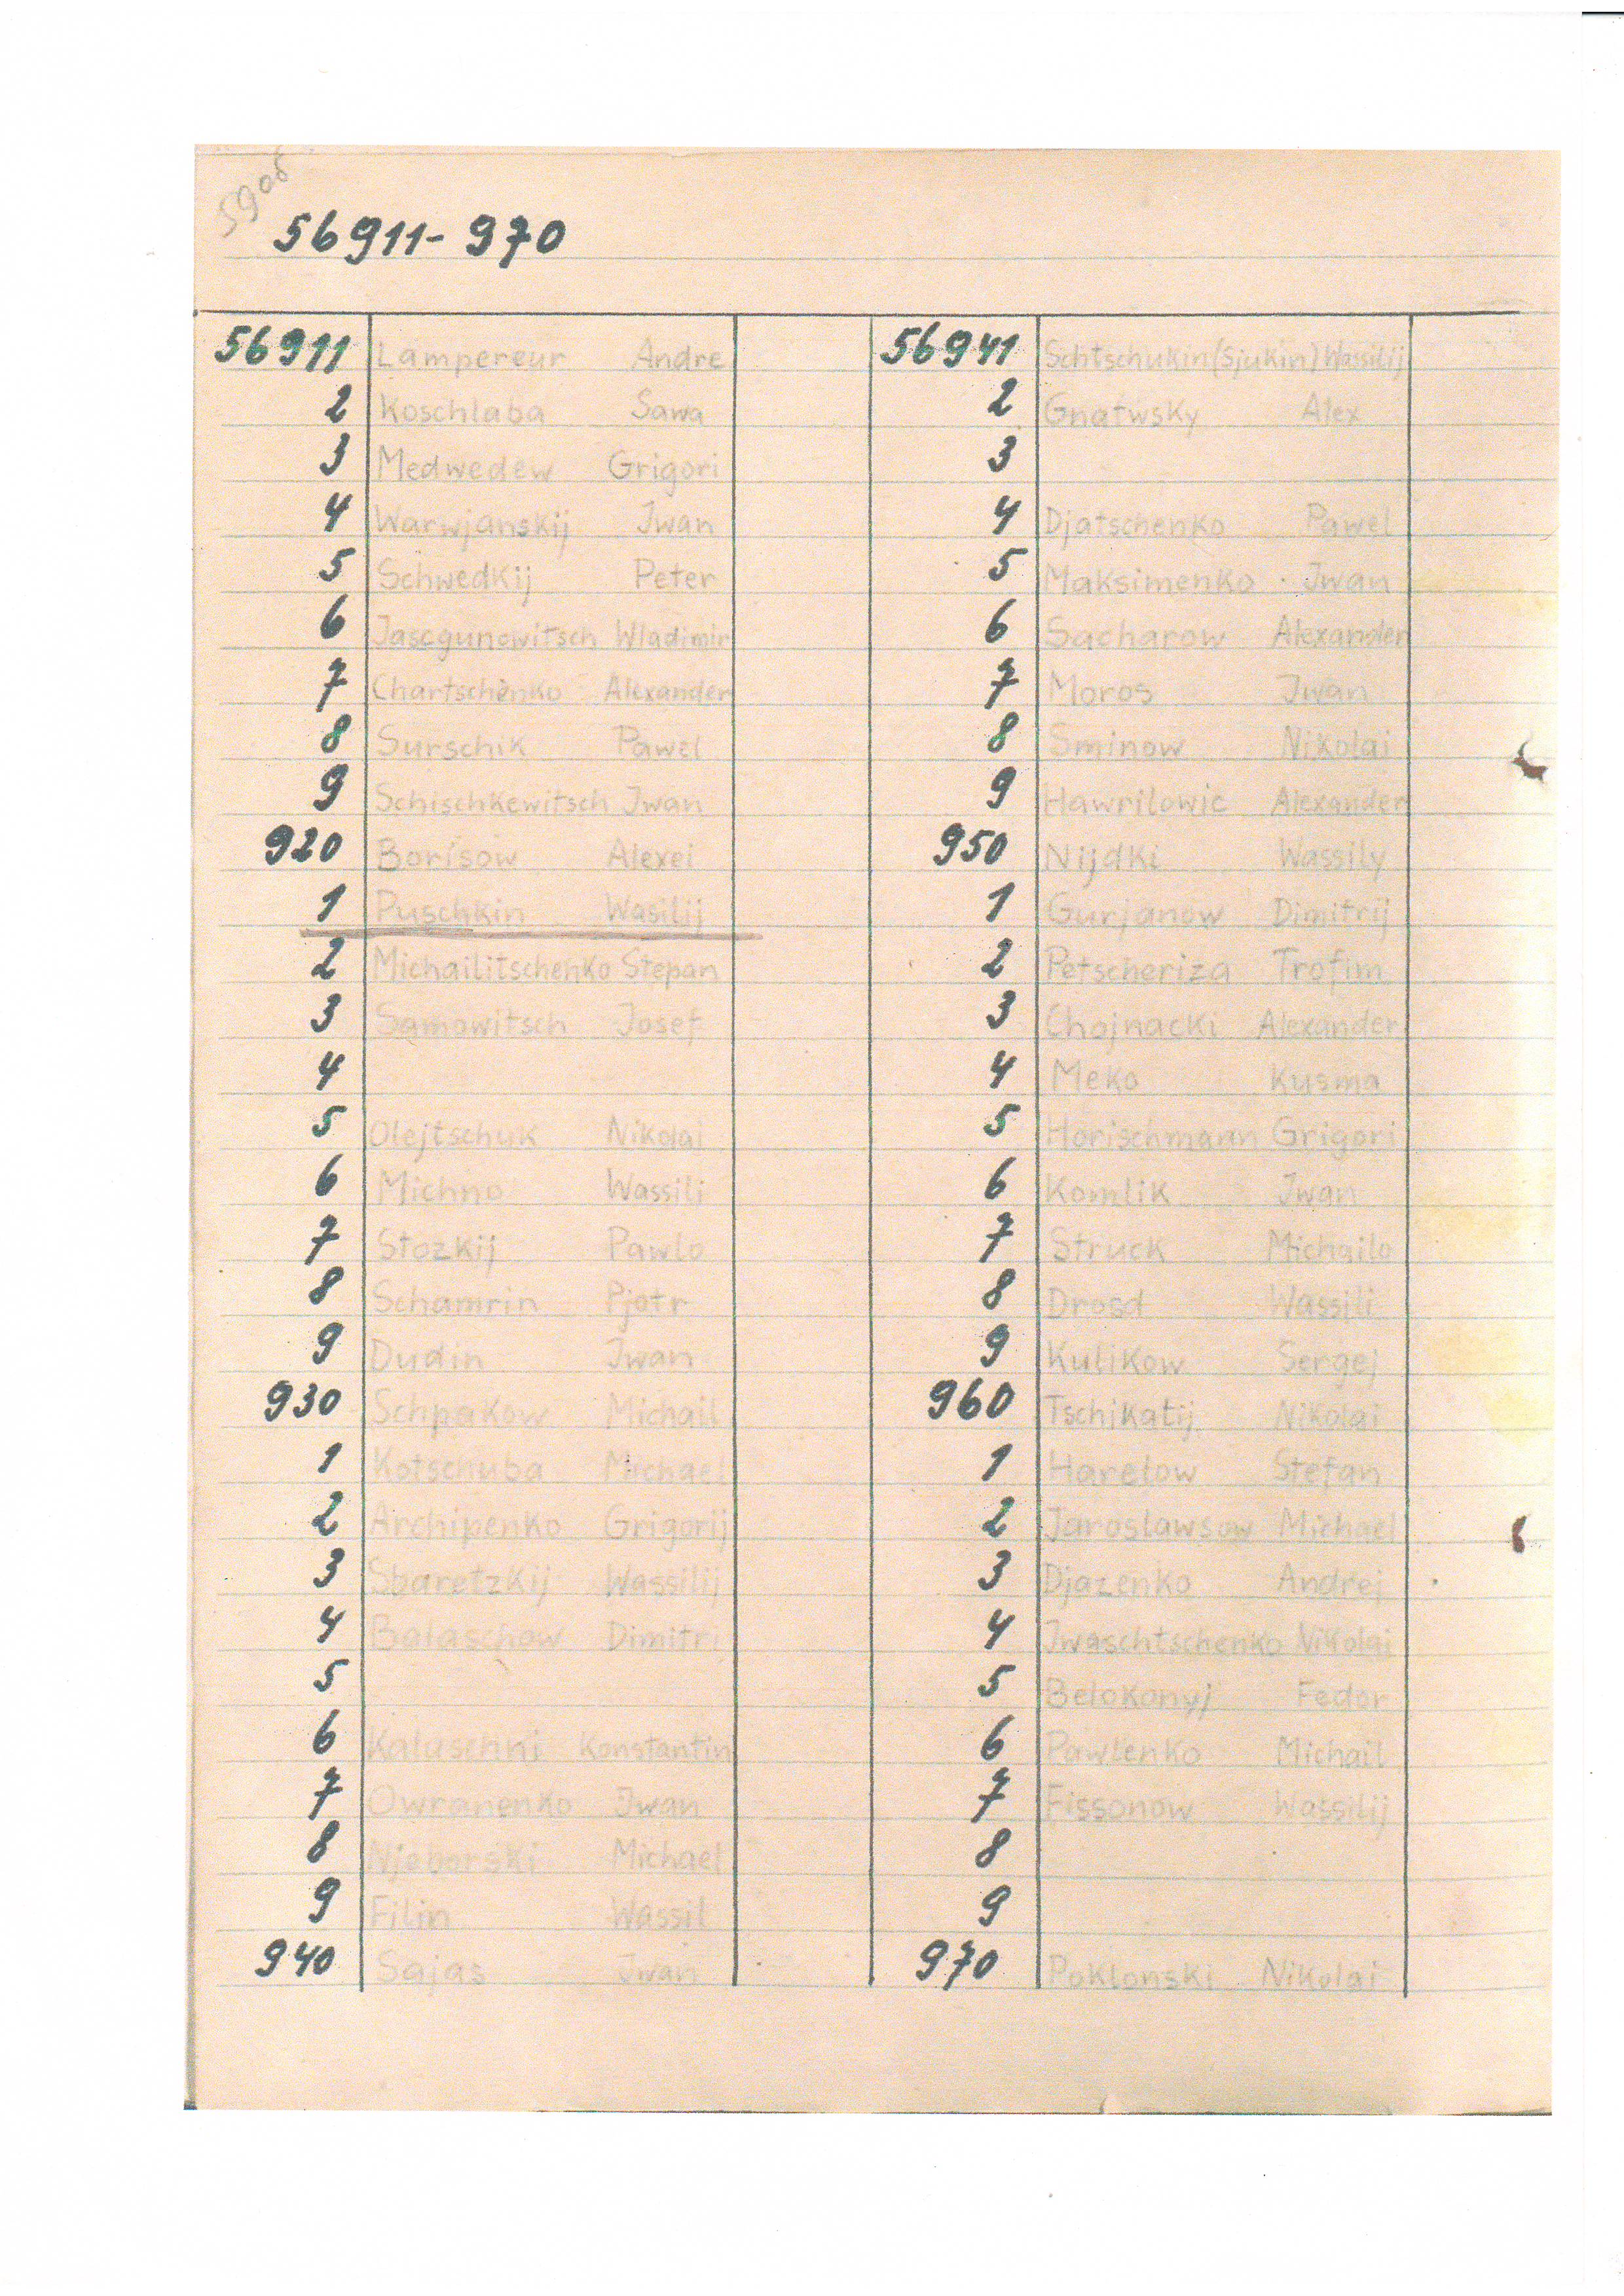 5908
56911-970
56911 Lampereur Andre
2 Koschlaba Sawa
3 Medwedew Grigori
4 Warwjanskij Jwan
5 Schwedkij Peter
6 Jascgunowitsch Wladimir
7 Chartschenko Alexander
8 Surschik Pawel
9 Schischkewitsch Jwan
920 Borisow Alexei
1 Puschkin Wasilij
2 Michailitschenko Stepan
3 Samowitsch Josef
4
5 Olejtschuk Nikolai
6 Michno Wassili
7 Stozkij Pawlo
8 Schamrin Pjotr
9 Dudin Jwan
930 Schpakow Michail
1 Kotschuba Michael
2 Archipenko Grigorij
3 Sbaretzkij Wassilij
4 Balaschow Dimitri
5
6 Kaluschni Konstantin
7 Owranenko Jwan
8 Njeborski Michael
9 Filin Wassil
940 Sajas Jwan
56941 Schtschukin(Sjukin) Wassilij
2 Gnatwsky Alex
3
4 Djatschenko Pawel
5 Maksimenko Jwan
6 Sacharow Alexander
7 Moros Jwan
8 Sminow Nikolai
9 Hawrilowic Alexander
950 Nijdki Wassily
1 Gurjanow Dimitrij
2 Petscheriza Trofim
3 Chojnacki Alexander
4 Meko Kusma
5 Horischmann Grigori
6 Komlik Jwan
7 Struck Michailo
8 Drosd Wassili
9 Kulikow Sergej
960 Tschikatij Nikolai
1 Harelow Stefan
2 Jaroslawsow Michael
3 Djazenko Andrej
4 Jwaschtschenko Nikolai
5 Belokonyj Fedor
6 Pawlenko Michail
7 Fissonow Wassilij
8
9
970 Poklonski Nikolai